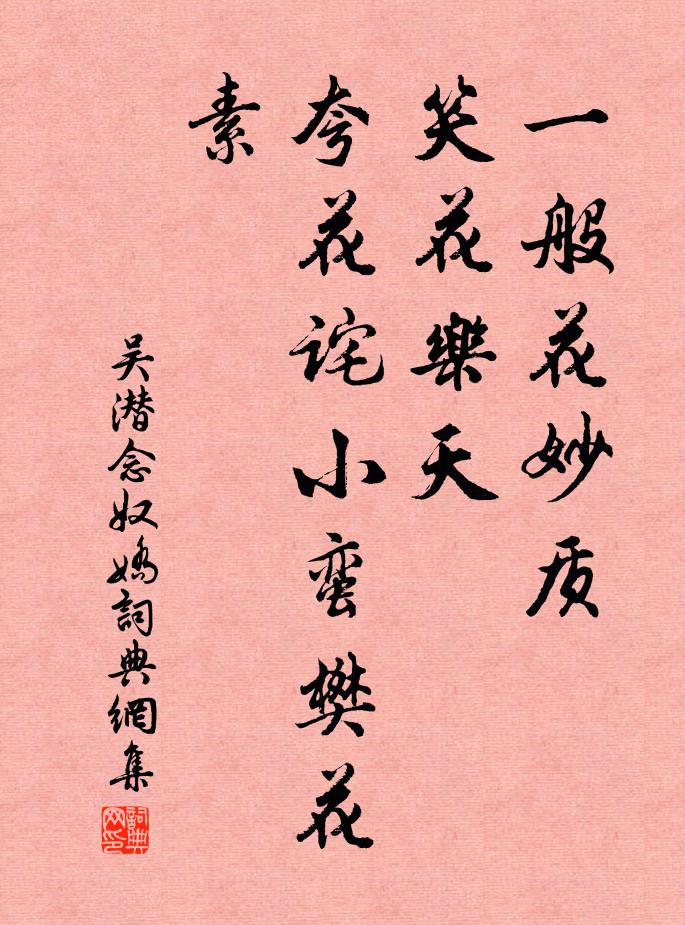 一般花妙质
笑花樂天
夸花诧小蛮樊花
素
吴潜念奴嬌詞典網集
詞典网印